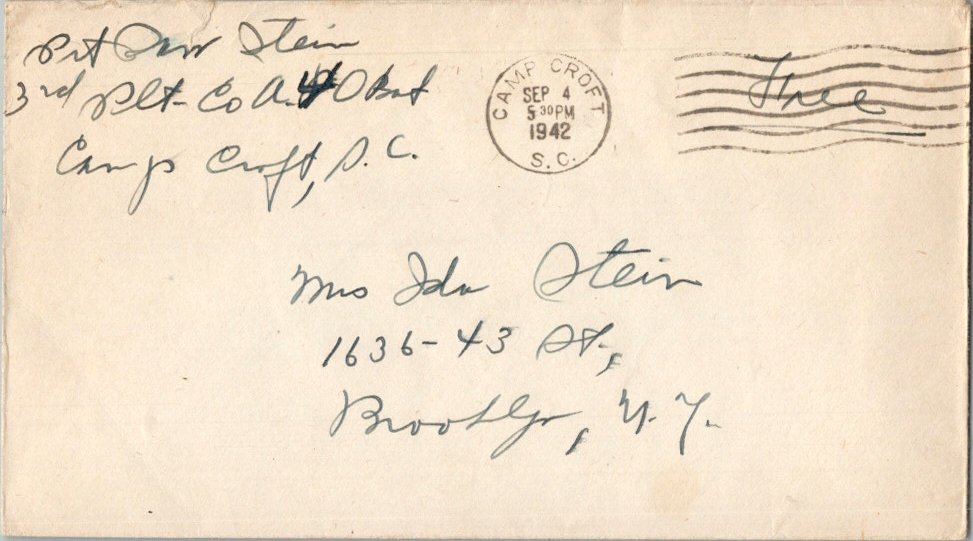 Pvt Stein
3rd Plt - Co A. 40 Bat
Camp Croft, S. C.
CAMP CROFT
SEP 4
5 30 PM
1942
S. C.
Free
Mrs Ida Stein
1636 - 43 St.,
Brooklyn, N. Y.